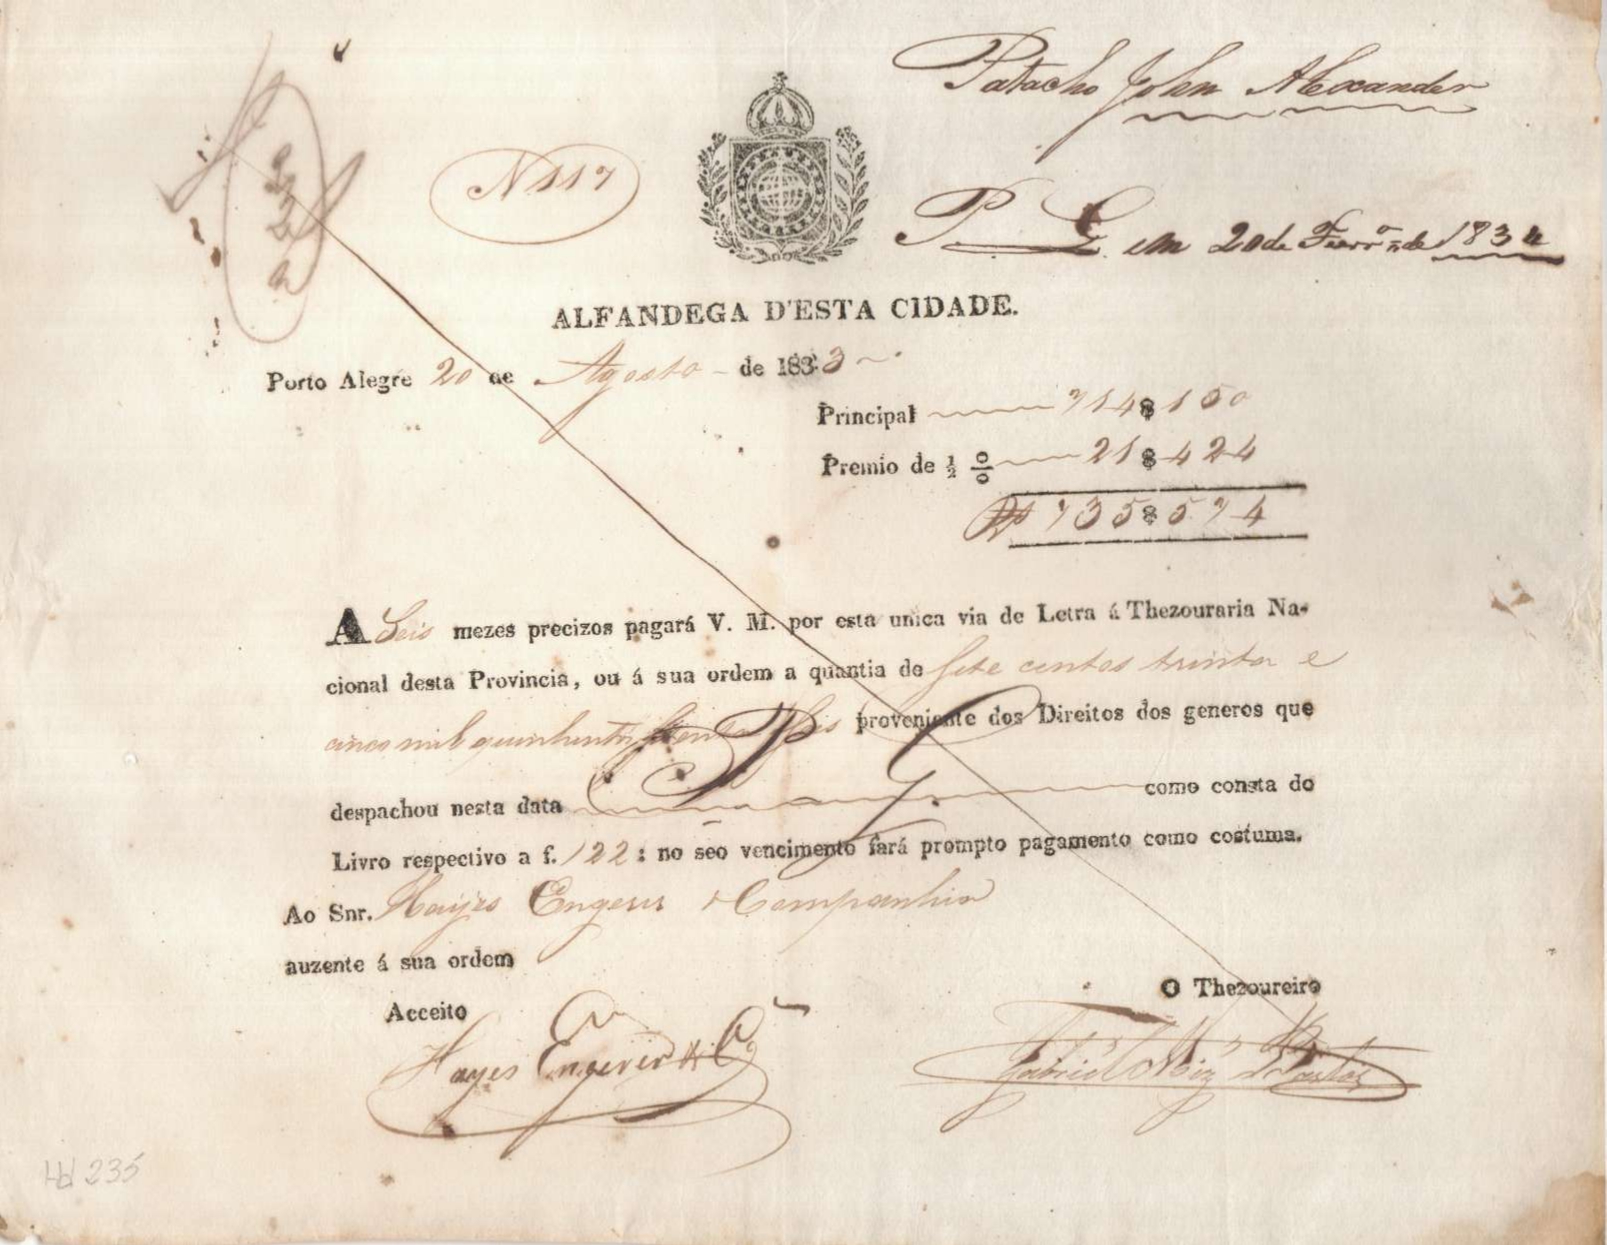 Patacho John Alexander
N 117
P. G. em 20 de Feverº de 1834
ALFANDEGA D'ESTA CIDADE.
Porto Alegre 20 de Agosto de 1833
Principal 714$150
Premio de ½ 0/0 21$424
Rs 735$574
A Seis mezes precizos pagará V. M. por esta unica via de Letra á Thezouraria Na-
cional desta Provincia, ou á sua ordem a quantia de Sete centos trinta e
cinco mil quinhentos Setenta reis proveniente dos Direitos dos generos que
P. G.
despachou nesta data como consta do
Livro respectivo a f. 122: no seo vencimento fará prompto pagamento como costuma.
Ao Snr. Hayes Engerer & Companhia
auzente á sua ordem
Acceito
O Thezoureiro
Hayes Engerer & Cª
Gabriel Miz Bastos
HH 235